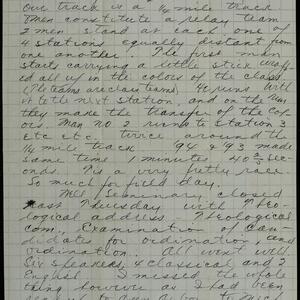 Our track is a 1/4 mile track
Men constitute a relay team
2 men stand at each one of
4 stations equally distant from
one another. The first man
starts carrying a little stick wrapp
ed all up in the colors of the class
(The teams are class teams). He runs with
it to the next station, and on the run
they make the transfer of the col
ors. Man no 2 runs to station 3
etc etc. twice around the
1/4 mile track. 94 & 93 made
same time 1 minutes 40 2/5 sec
onds. Tis a very pretty race
So much for field day.
Seminary closed
last Thursday with Theo-
logical address, Theological
com., Examination of Can-
didates for ordination, and
Ordination. All went well
Six spoke, 4 classical and 2
English. I missed the whole
thing however as I had been